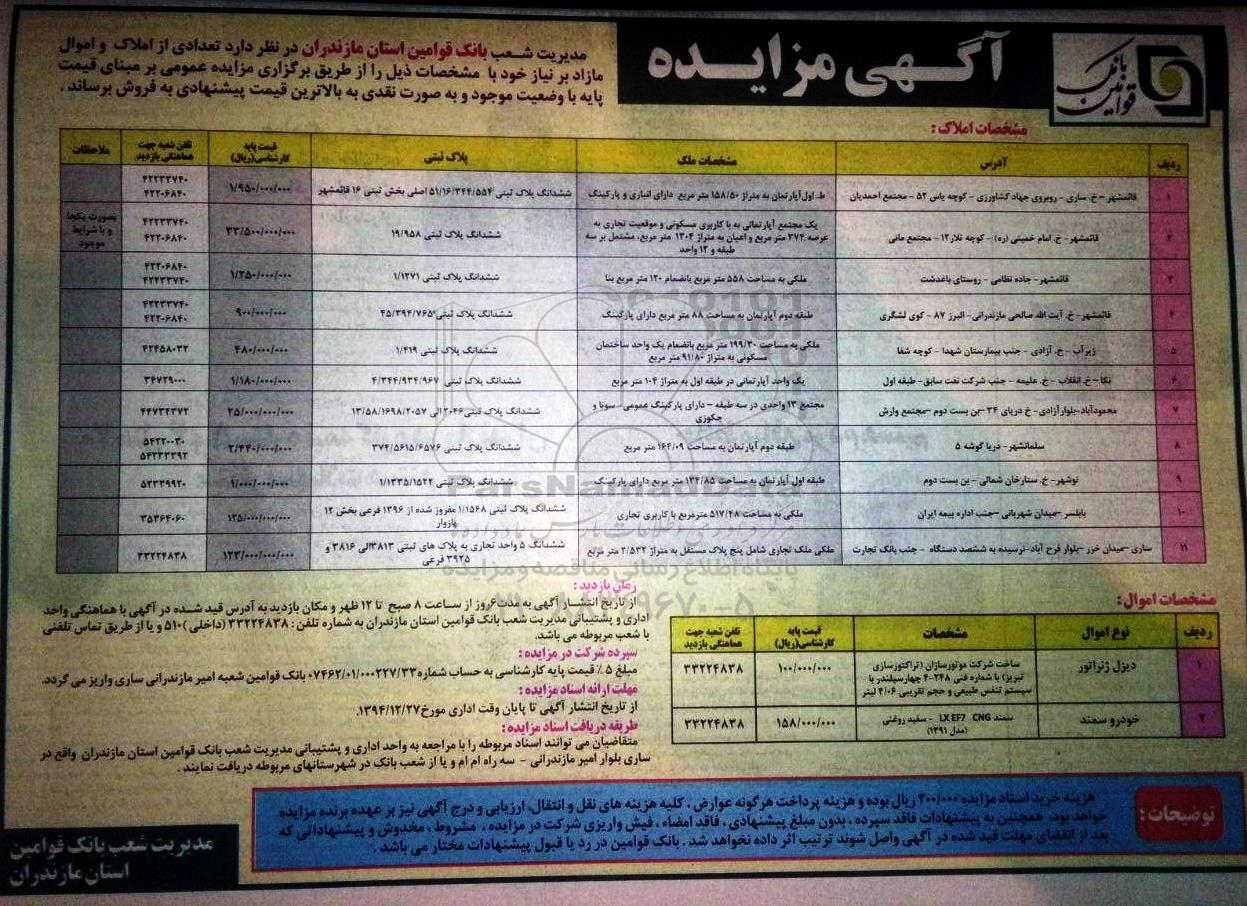 آگهی مزایده
بانک قوامین
مدیریت شعب بانک قوامین استان مازندران در نظر دارد تعدادی از املاک و اموال
مازاد بر نیاز خود با مشخصات ذیل را از طریق برگزاری مزایده عمومی بر مبنای قیمت
پایه با وضعیت موجود و به صورت نقدی به بالاترین قیمت پیشنهادی به فروش برساند .
مشخصات املاک :
ردیف آدرس مشخصات ملک پلاک ثبتی قیمت پایه کارشناسی(ریال) تلفن شعبه جهت هماهنگی بازدید ملاحظات
۱ قائمشهر – خ. ساری – روبروی جهاد کشاورزی – کوچه یاس ۵۳ – مجتمع احمدیان ط. اول آپارتمان به متراژ ۱۵۸/۵۰ متر مربع. دارای انباری و پارکینگ ششدانگ پلاک ثبتی ۵۱/۱۶/۳۴۴/۵۵۴ اصلی بخش ثبتی ۱۶ قائمشهر ۱/۹۵۰/۰۰۰/۰۰۰ ۴۲۲۳۳۷۴۰
۴۲۲۰۶۸۴۰
۲ قائمشهر- خ. امام خمینی (ره) – کوچه تلار۱۲ – مجتمع مانی یک مجتمع آپارتمانی به با کاربری مسکونی و موقعیت تجاری به
عرصه ۳۷۴ متر مربع و اعیان به متراژ ۱۳۰۴ متر مربع، مشتمل بر سه
طبقه و ۱۲ واحد ششدانگ پلاک ثبتی ۱۹/۹۵۸ ۳۳/۵۰۰/۰۰۰/۰۰۰ ۴۲۲۳۳۷۴۰
۴۲۲۰۶۸۴۰ بصورت یکجا
و با شرایط
موجود
۳ قائمشهر- جاده نظامی – روستای باغدشت ملکی به مساحت ۵۵۸ متر مربع بانضمام ۱۲۰ متر مربع بنا ششدانگ پلاک ثبتی ۱/۱۲۷۱ ۱/۲۵۰/۰۰۰/۰۰۰ ۴۲۲۰۶۸۴۰
۴۲۲۳۳۷۴۰
۴ قائمشهر- خ. آیت الله صالحی مازندرانی- البرز ۸۷ – کوی لشگری طبقه دوم آپارتمان به مساحت ۸۸ متر مربع دارای پارکینگ ششدانگ پلاک ثبتی ۴۵/۳۹۴/۷۶۵ ۹۰۰/۰۰۰/۰۰۰ ۴۲۲۳۳۷۴۰
۴۲۲۰۶۸۴۰
۵ زیرآب – خ. آزادی – جنب بیمارستان شهدا – کوچه شفا ملکی به مساحت ۱۹۹/۳۰ متر مربع بانضمام یک واحد ساختمان
مسکونی به متراژ ۹۱/۸۰ متر مربع ششدانگ پلاک ثبتی ۱/۴۱۹ ۴۸۰/۰۰۰/۰۰۰ ۴۲۴۵۸۰۳۲
۶ نکا – خ. انقلاب – خ. علیمه – جنب شرکت نفت سابق- طبقه اول یک واحد آپارتمانی در طبقه اول به متراژ ۱۰۴ متر مربع ششدانگ پلاک ثبتی ۴/۳۴۴/۹۳۴/۹۶۷ ۱/۱۸۰/۰۰۰/۰۰۰ ۳۴۷۲۹۰۰۰
۷ محمودآباد-بلوار آزادی- خ دریای ۳۴ –بن بست دوم –مجتمع وارش مجتمع ۱۳ واحدی در سه طبقه – دارای پارکینگ عمومی- سونا و
جکوزی ششدانگ پلاک ثبتی ۲۰۴۶ الی ۱۳/۵۸/۱۶۹۸/۲۰۵۷ ۲۵/۰۰۰/۰۰۰/۰۰۰ ۴۴۷۳۴۳۷۲
۸ سلمانشهر- دریا گوشه ۵ طبقه دوم آپارتمان به مساحت ۱۶۴/۰۹ متر مربع ششدانگ پلاک ثبتی ۳۷۴/۵۶۱۵/۶۵۷۶ ۲/۴۴۰/۰۰۰/۰۰۰ ۵۴۲۲۰۰۳۰
۵۴۲۳۳۲۹۲
۹ نوشهر- خ. ستارخان شمالی – بن بست دوم طبقه اول آپارتمان به مساحت ۱۳۴/۸۵ متر مربع دارای پارکینگ ششدانگ پلاک ثبتی ۱/۱۳۳۵/۱۵۲۲ ۱/۰۰۰/۰۰۰/۰۰۰ ۵۲۳۳۹۹۲۰
۱۰ بابلسر –میدان شهربانی –جنب اداره بیمه ایران ملکی به مساحت ۵۱۷/۴۸ مترمربع با کاربری تجاری ششدانگ پلاک ثبتی ۱/۱۵۶۸ مفروز شده از ۱۳۹۶ فرعی بخش ۱۲
پازوار ۱۲۵/۰۰۰/۰۰۰/۰۰۰ ۳۵۳۶۴۰۶۰
۱۱ ساری –میدان خزر –بلوار فرح آباد-نرسیده به ششصد دستگاه – جنب بانک تجارت ملکی ملک تجاری شامل پنج پلاک مستقل به متراژ ۲/۵۳۲ متر مربع ششدانگ ۵ واحد تجاری به پلاک های ثبتی ۳۸۱۳الی ۳۸۱۶ و
۳۹۲۵ فرعی ۱۲۳/۰۰۰/۰۰۰/۰۰۰ ۳۳۲۲۴۸۳۸
ParsNamadData
پایگاه اطلاع رسانی مناقصه و مزایده
زمان بازدید :
از تاریخ انتشار آگهی به مدت۶روز از ساعت ۸ صبح تا ۱۲ ظهر و مکان بازدید به آدرس قید شده در آگهی با هماهنگی واحد
اداری و پشتیبانی مدیریت شعب بانک قوامین استان مازندران به شماره تلفن : ۳۳۲۲۴۸۳۸ (داخلی )۵۱۰ و یا از طریق تماس تلفنی
با شعب مربوطه می باشد.
سپرده شرکت در مزایده :
مبلغ ۵ ٪ قیمت پایه کارشناسی به حساب شماره ۰۷۴۶۲/۰۱/۰۰۰۲۲۷/۳۳ بانک قوامین شعبه امیر مازندرانی ساری واریز می گردد.
مهلت ارائه اسناد مزایده :
از تاریخ انتشار آگهی تا پایان وقت اداری مورخ۱۳۹۴/۱۲/۲۷.
طریقه دریافت اسناد مزایده :
متقاضیان می توانند اسناد مربوطه را با مراجعه به واحد اداری و پشتیبانی مدیریت شعب بانک قوامین استان مازندران واقع در
ساری بلوار امیر مازندرانی – سه راه ام ام و یا از شعب بانک در شهرستانهای مربوطه دریافت نمایند .
مشخصات اموال :
ردیف نوع اموال مشخصات قیمت پایه کارشناسی(ریال) تلفن شعبه جهت هماهنگی بازدید
۱ دیزل ژنراتور ساخت شرکت موتورسازان (تراکتورسازی
تبریز) با شماره فنی ۲۴۸-۴ چهارسیلندر با
سیستم تنفس طبیعی و حجم تقریبی ۴/۰۶ لیتر ۱۰۰/۰۰۰/۰۰۰ ۳۳۲۲۴۸۳۸
۲ خودرو سمند سمند LX EF7 CNG – سفید روغنی
(مدل ۱۳۹۱) ۱۵۸/۰۰۰/۰۰۰ ۳۳۲۲۴۸۳۸
توضیحات :
هزینه خرید اسناد مزایده ۲۰۰/۰۰۰ ریال بوده و هزینه پرداخت هرگونه عوارض ، کلیه هزینه های نقل و انتقال، ارزیابی و درج آگهی نیز بر عهده برنده مزایده
خواهد بود، همچنین به پیشنهادات فاقد سپرده ، بدون مبلغ پیشنهادی ، فاقد امضاء ، فیش واریزی شرکت در مزایده ، مشروط ، مخدوش و پیشنهاداتی که
بعد از انقضای مهلت قید شده در آگهی واصل شوند ترتیب اثر داده نخواهد شد . بانک قوامین در رد یا قبول پیشنهادات مختار می باشد .
مدیریت شعب بانک قوامین
استان مازندران